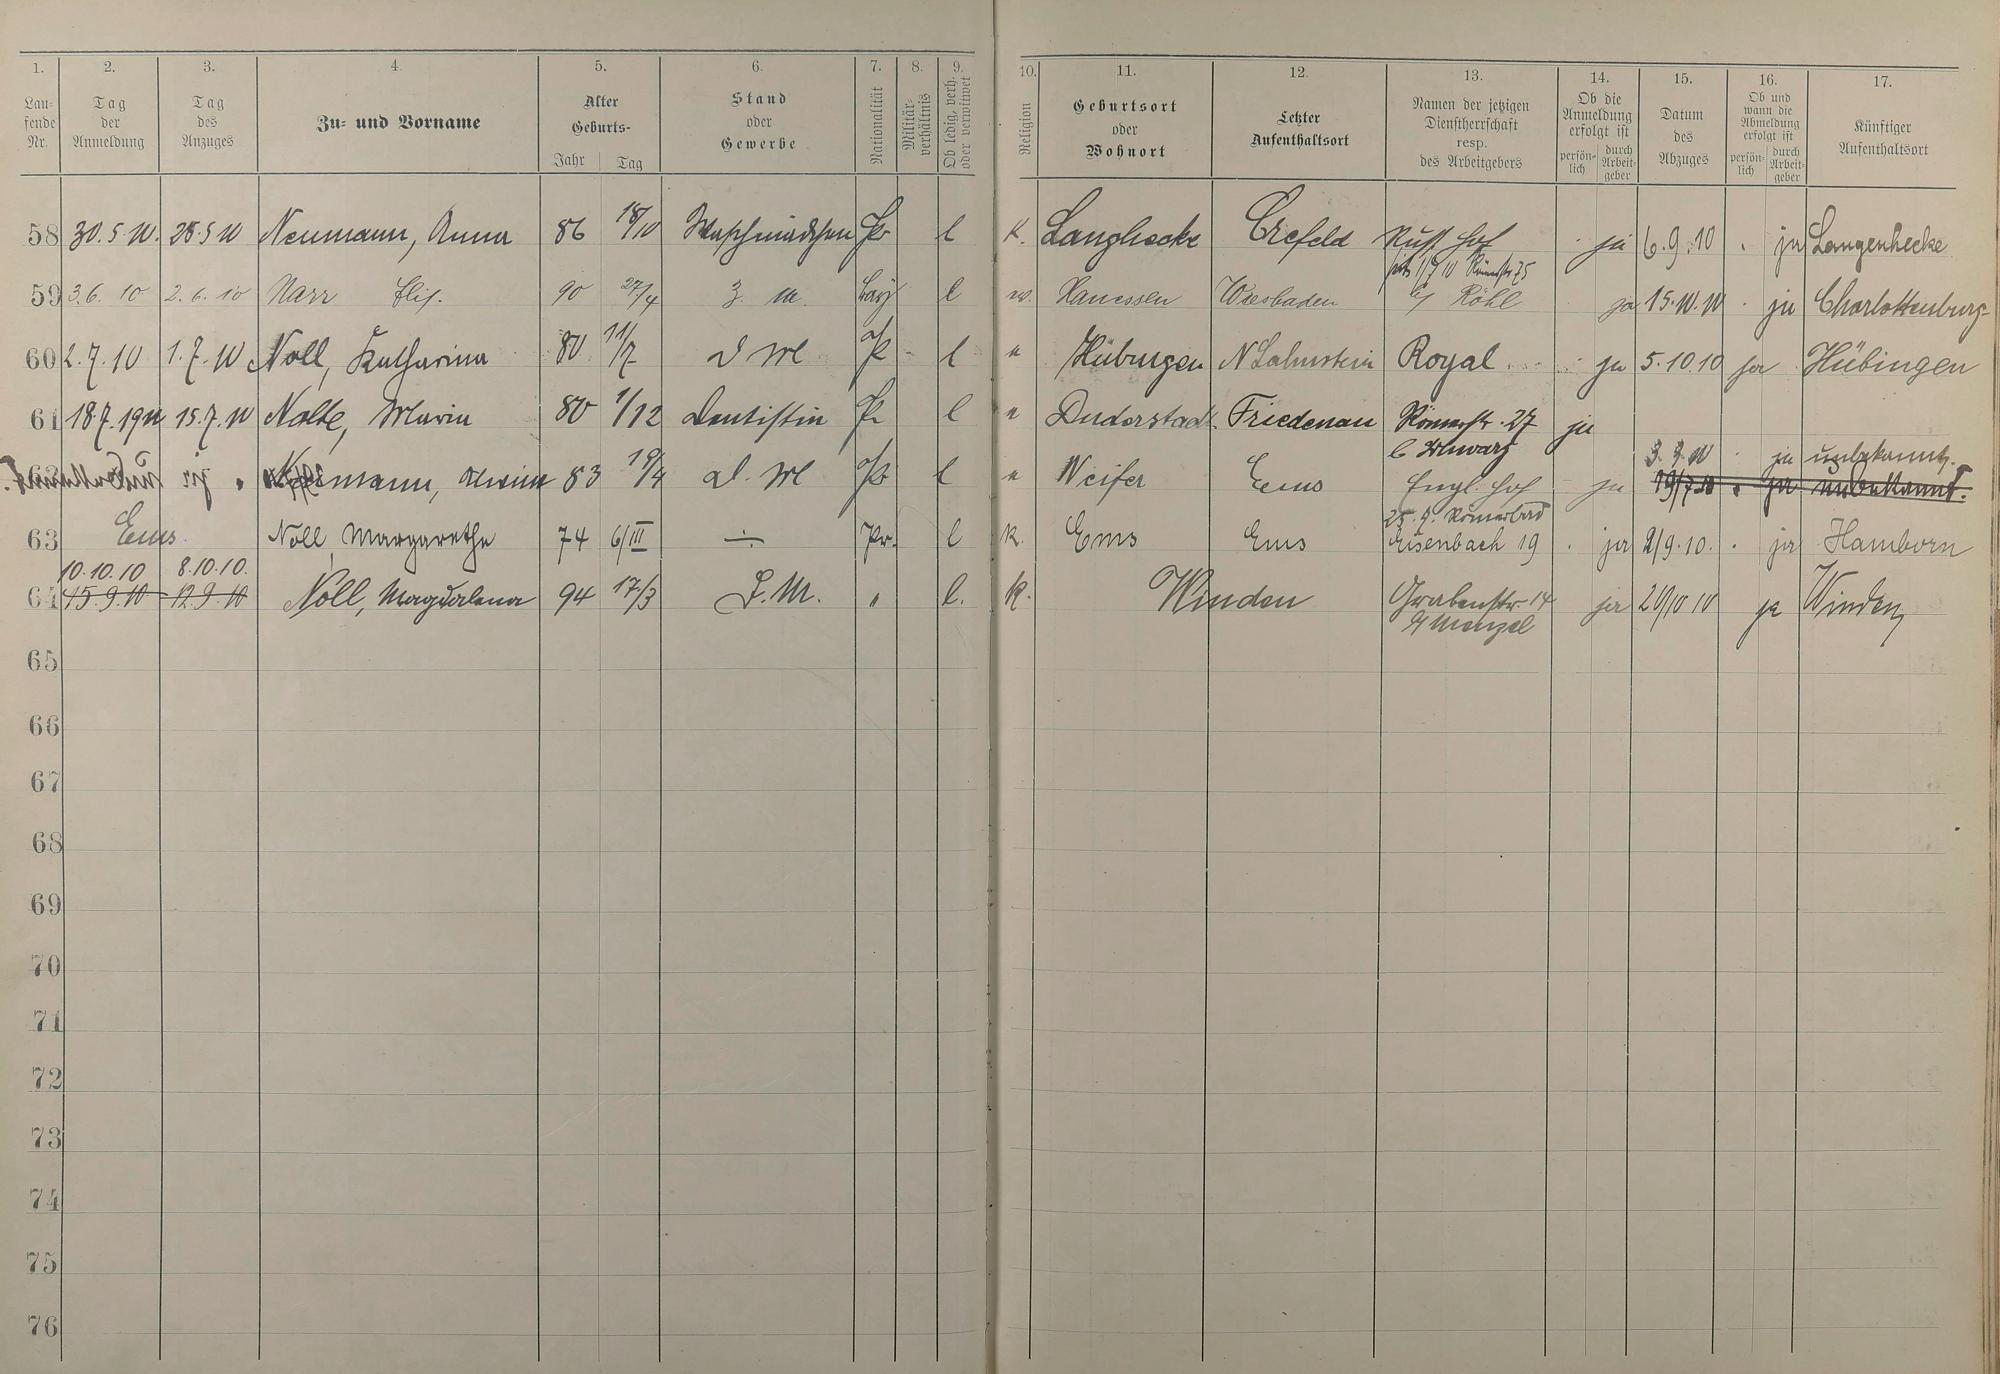 1. 2. 3. 4. 5. 6. 7. 8. 9. 10. 11. 12. 13. 14. 15. 16. 17.
Lau-fende Nr. Tag der Anmeldung Tag des Anzuges Zu- und Vorname Alter Geburts- Jahr Tag Stand oder Gewerbe Nationalität Militär-verhältnis Ob ledig, verh. oder verwitwet Religion Geburtsort oder Wohnort Letzter Aufenthaltsort Namen der jetzigen Dienstherrschaft resp. des Arbeitgebers Ob die Anmeldung erfolgt ist persön-lich durch Arbeit-geber Datum des Abzuges Ob und wann die Abmeldung erfolgt ist persön-lich durch Arbeit-geber Künftiger Aufenthaltsort
58 30.5.10. 28.5 10 Neumann, Anna 86 18/10 Waschmädchen Pr l k. Langhecke Crefeld Russ Hof ja 6.9.10 ja Langenhecke
59 3.6.10 2.6.10 Narr Elis. 90 27/4 Z. M. Bay l Wiesbaden Röhl ja 15.10.10 ja Charlottenburg
60 2.7.10 1.7.10 Noll, Katharina 80 11/7 D M Pr l " Hübingen N Lahnstein Royal ja 5.10 10 ja Hübingen
61 18.7.1910 15.7.10 Nolte, Maria 80 1/12 Dentistin Pr l " Duderstadt Friedenau Römerstr. 27 ja
b Schwarz 3.9.10 ja unbekannt.
83 19/4 D. M Pr l " Weifer Ems Engl. Hof ja 19/7 10 ja unbekannt.
25.9. Römerbad
63 Ems Noll Margarethe 74 6/III Pr. l k. Ems Ems Eisenbach 19 ja 2/9.10. ja Hamborn
10.10.10 8.10.10.
64 15.9.10 12.9.10 Noll, Magdalena 94 17/3 D. M. " l. k. Winden Grabenstr. 14 ja 20/10 10 ja Winden
b/ Menzel
65
66
67
68
69
70
71
72
73
74
75
76